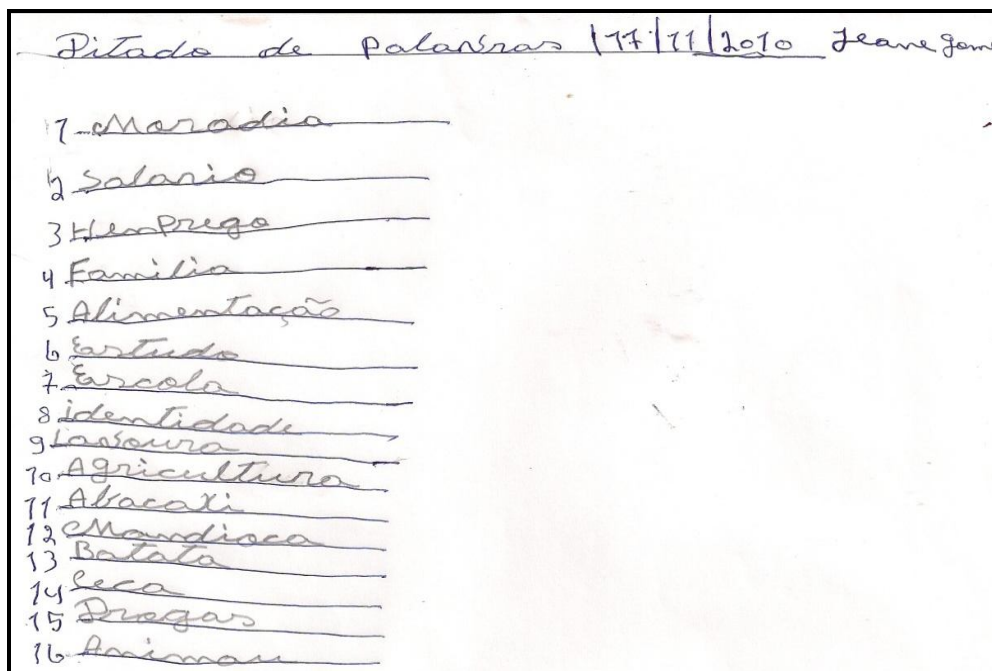 Ditado de Palavras 17/11/2010 Jeane gom
1 - Moradia
2 Salario
3 Hemprego
4 Familia
5 Alimentação
6 Estudo
7 Escola
8 identidade
9 Lavoura
10 Agricultura
11 Abacaxi
12 Mandioca
13 Batata
14 Ceca
15 Drogas
16 Animau